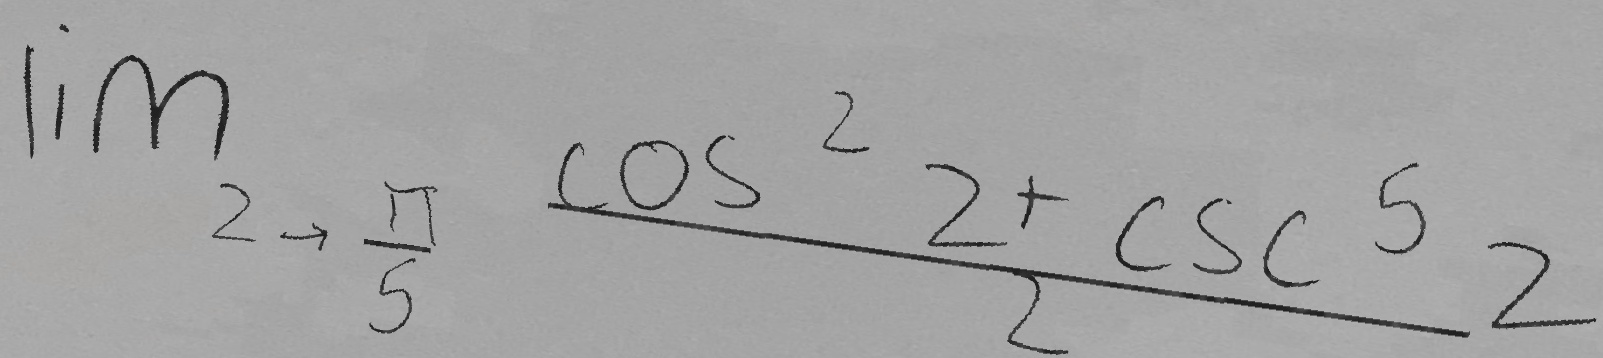 \lim_{z \to \frac{\pi}{5}} \frac{\cos^2 z + \csc^5 z}{z}